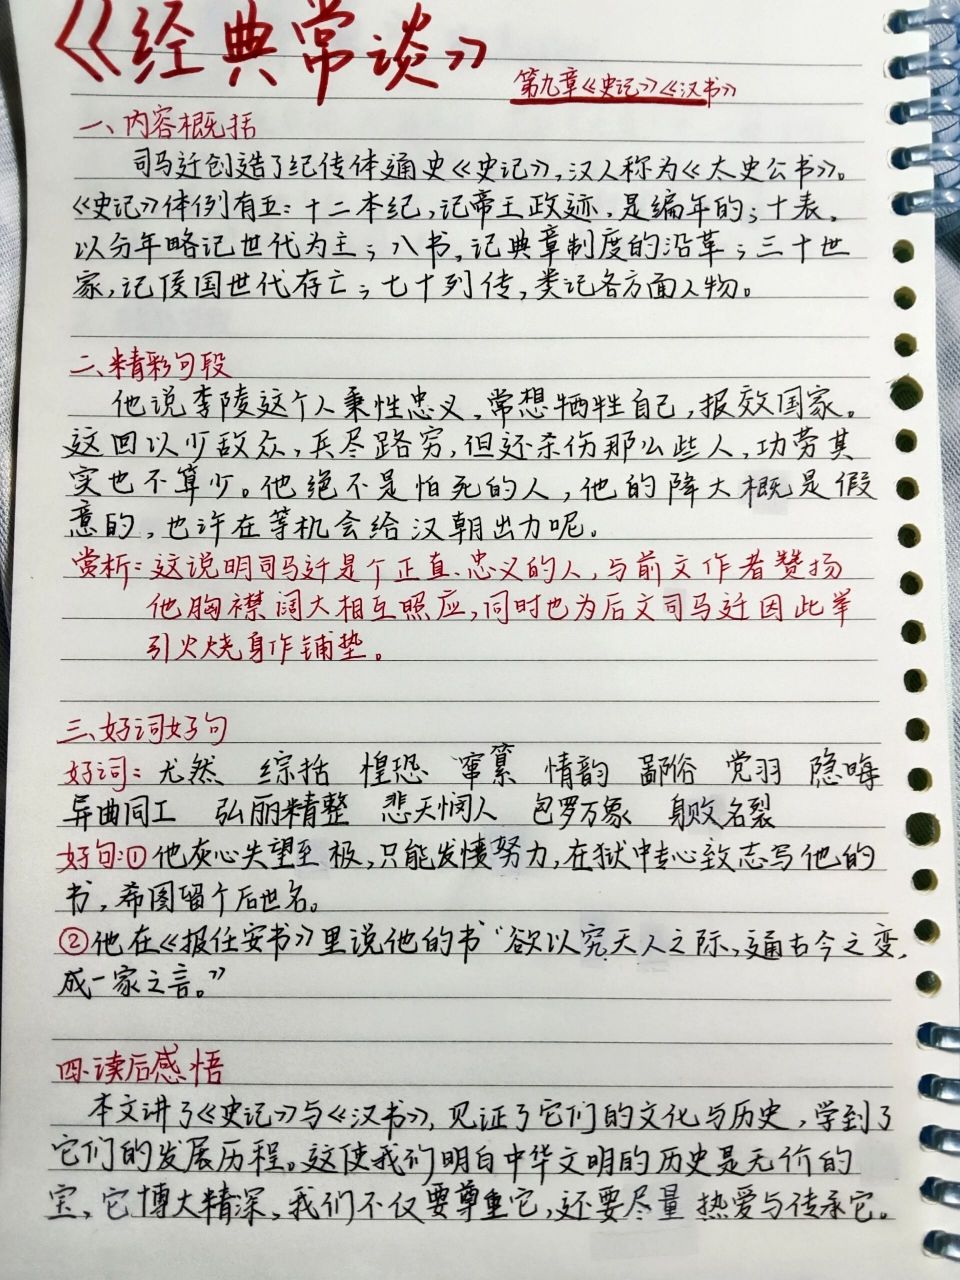 《经典常谈》
第九章《史记》《汉书》
一、内容概括
司马迁创造了纪传体通史《史记》，汉人称为《太史公书》。
《史记》体例有五：十二本纪，记帝王政迹，是编年的；十表，
以分年略记世代为主；八书，记典章制度的沿革；三十世
家，记侯国世代存亡；七十列传，类记各方面人物。
二、精彩句段
他说李陵这个人秉性忠义，常想牺牲自己，报效国家。
这回以少敌众，兵尽路穷，但还杀伤那么些人，功劳其
实也不算少。他绝不是怕死的人，他的降大概是假
意的，也许在等机会给汉朝出力呢。
赏析：这说明司马迁是个正直、忠义的人，与前文作者赞扬
他胸襟阔大相互照应，同时也为后文司马迁因此举
引火烧身作铺垫。
三、好词好句
好词：尤然 综括 惶恐 窜纂 情韵 鄙俗 党羽 隐晦
异曲同工 弘丽精整 悲天悯人 包罗万象 身败名裂
好句：①他灰心失望至极，只能发愤努力，在狱中专心致志写他的
书，希图留个后世名。
②他在《报任安书》里说他的书“欲以究天人之际，通古今之变，
成一家之言。”
四、读后感悟
本文讲了《史记》与《汉书》，见证了它们的文化与历史，学到了
它们的发展历程。这使我们明白中华文明的历史是无价的
宝，它博大精深，我们不仅要尊重它，还要尽量热爱与传承它。